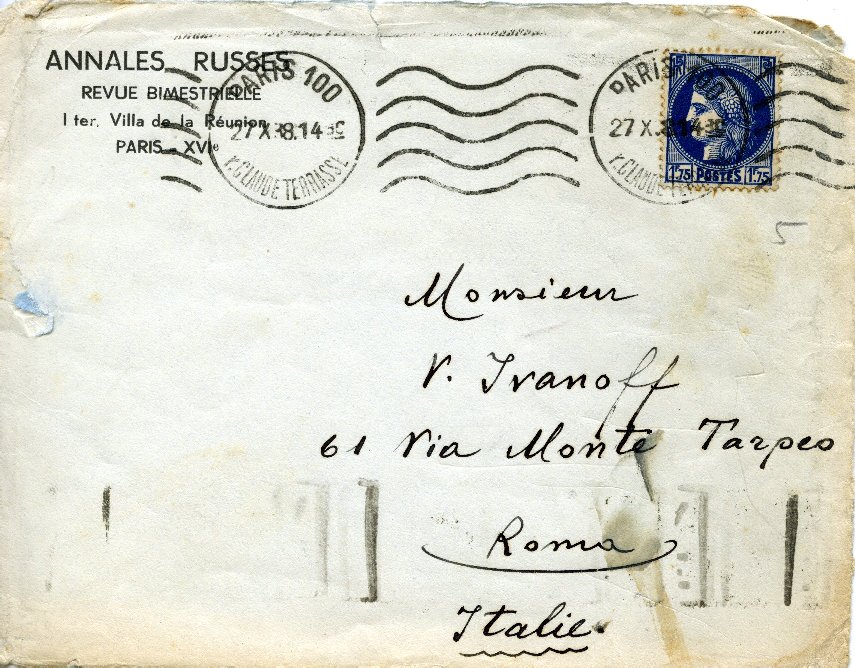 ANNALES RUSSES
REVUE BIMESTRIELLE
1 ter, Villa de la Réunion
PARIS - XVIe
PARIS 100
27 X 38.14
R. CLAUDE TERRASSE
PARIS 100
27 X 38.14
R. CLAUDE
RF
1F75 POSTES 1F75
5
Monsieur
V. Ivanoff
61 Via Monte Tarpeo
Roma
Italie.